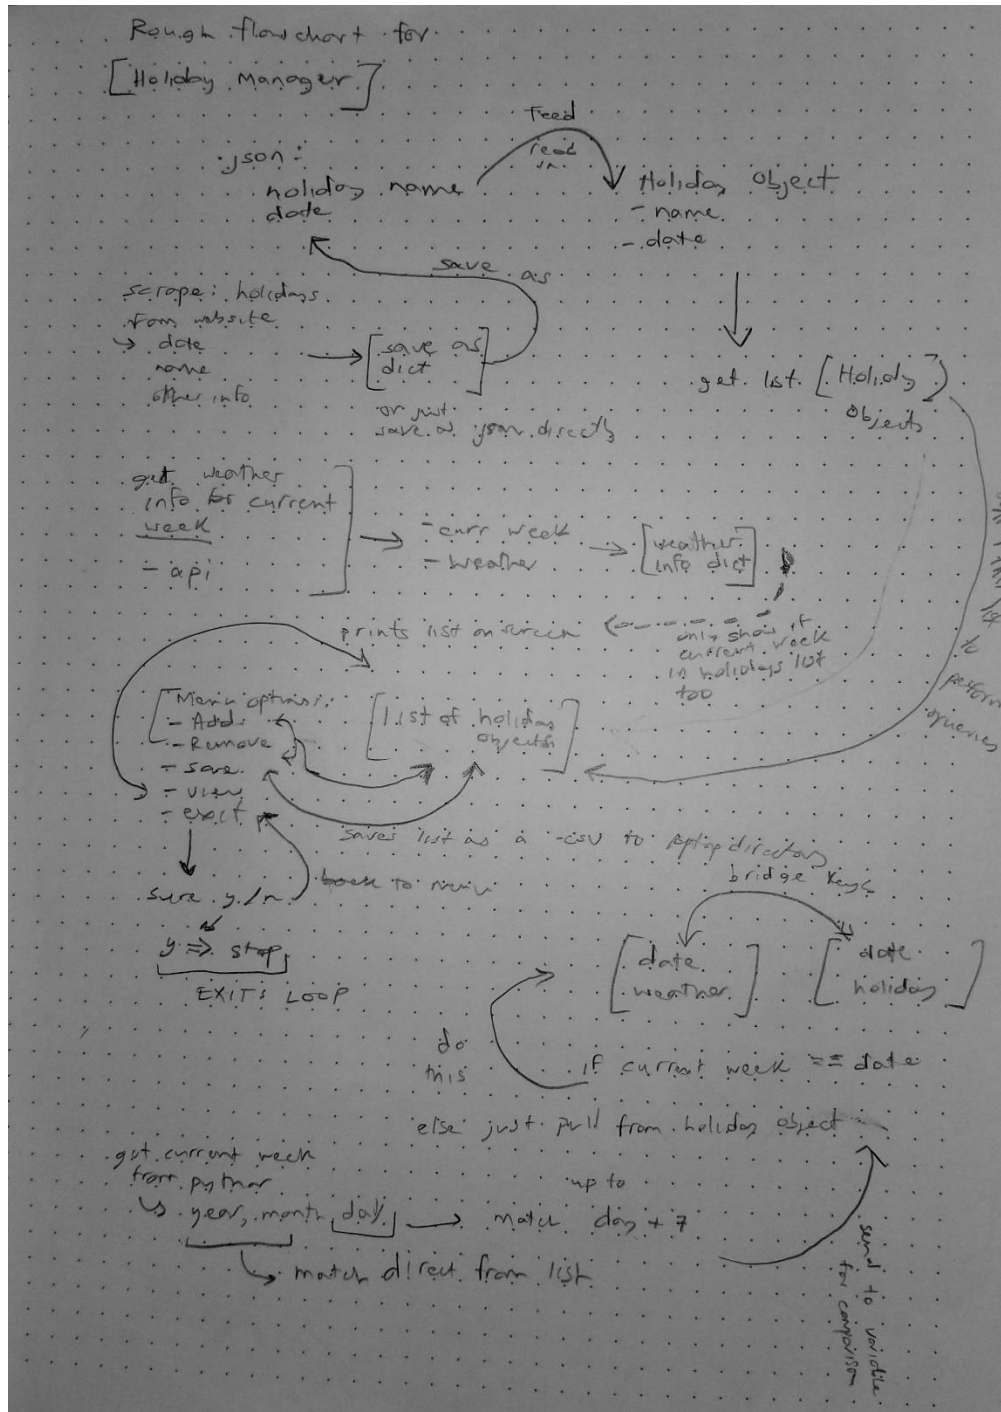 Rough flowchart for
[Holiday Manager]
Feed
read
in
.json:
holiday name
date
Holiday object
- name
- date
save as
scrape: holidays
from website
↳ date
name
other info
→ [save as
dict]
or just
save as json directly
get list [Holiday]
objects
get weather
info for current
week
- api
→ - curr week
- weather
→ [weather
info dict]
only show if
current week
in holidays list
too
prints list on screen
list to
perform
queries
Menu options:
- Add
- Remove
- save
- view
- exit
[list of holiday
objects]
saves list as a .csv to laptop directory
back to menu
sure y/n
y => stop
EXITS LOOP
bridge keys
[date
weather]
[date
holiday]
do
this
if current week == date
else just pull from holiday object
get current week
from python
↳ year, month, day → match day + 7
up to
↳ match direct from list
send to variable
for comparison